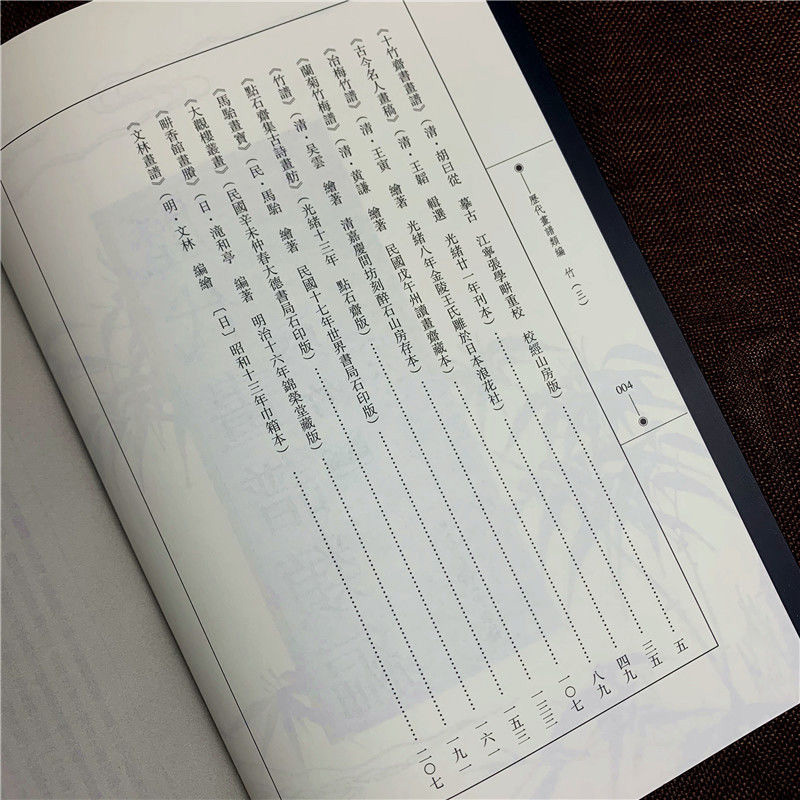 歷代畫譜類編 竹（三）
004
《十竹齋書畫譜》（清·胡曰從 摹古 江寧張學畊重校 校經山房版）……五
《古今名人畫稿》（清·王韜 輯選 光緒廿一年刊本）……三五
《冶梅竹譜》（清·王寅 繪著 光緒八年金陵王氏雕於日本浪花社）……四九
《蘭菊竹梅譜》（清·黃謙 繪著 民國戊午州讀畫齋藏本）……八九
《竹譜》（清·吳雲 繪著 清嘉慶間坊刻醉石山房存本）……一〇七
《點石齋集古詩畫舫》（光緒十三年 點石齋版）……一三三
《馬駘畫寶》（民·馬駘 繪著 民國十七年世界書局石印版）……一五三
《大觀樓叢畫》（民國辛未仲春大德書局石印版）……一六一
《畊香館畫賸》（日·滝和亭 編著 明治十六年錦榮堂藏版）……一九一
《文林畫譜》（明·文林 編繪 〔日〕昭和十三年巾箱本）……二〇七